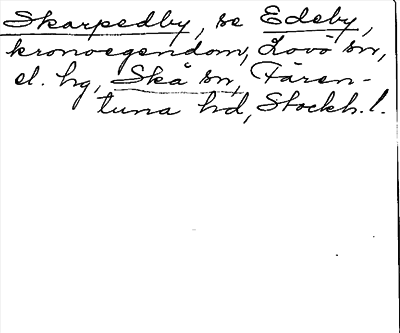 Skarpedby, se Edeby,
kronoegendom, Lovö sn,
el. hg, Skå sn, Fären-
tuna hd, Stockh. l.